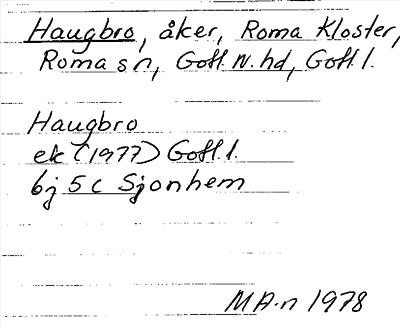 Haugbro, åker, Roma Kloster,
Roma sn, Gotl. N. hd, Gotl.l.
Haugbro
ek (1977) Gotl.l.
bj 5 c Sjonhem
MA-n 1978